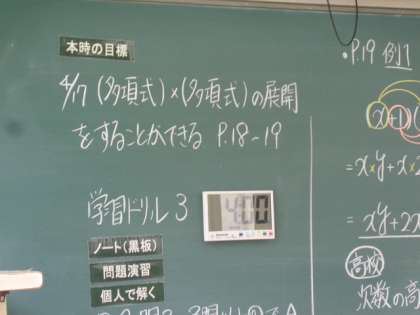 本時の目標
4/17 (多項式)×(多項式)の展開
をすることができる P.18-19
学習ドリル3
4:00
ノート(黒板)
問題演習
個人で解く
・P.19 例1
(x+1)(
=xy+x×2
=xy+2x
高校
次数の高